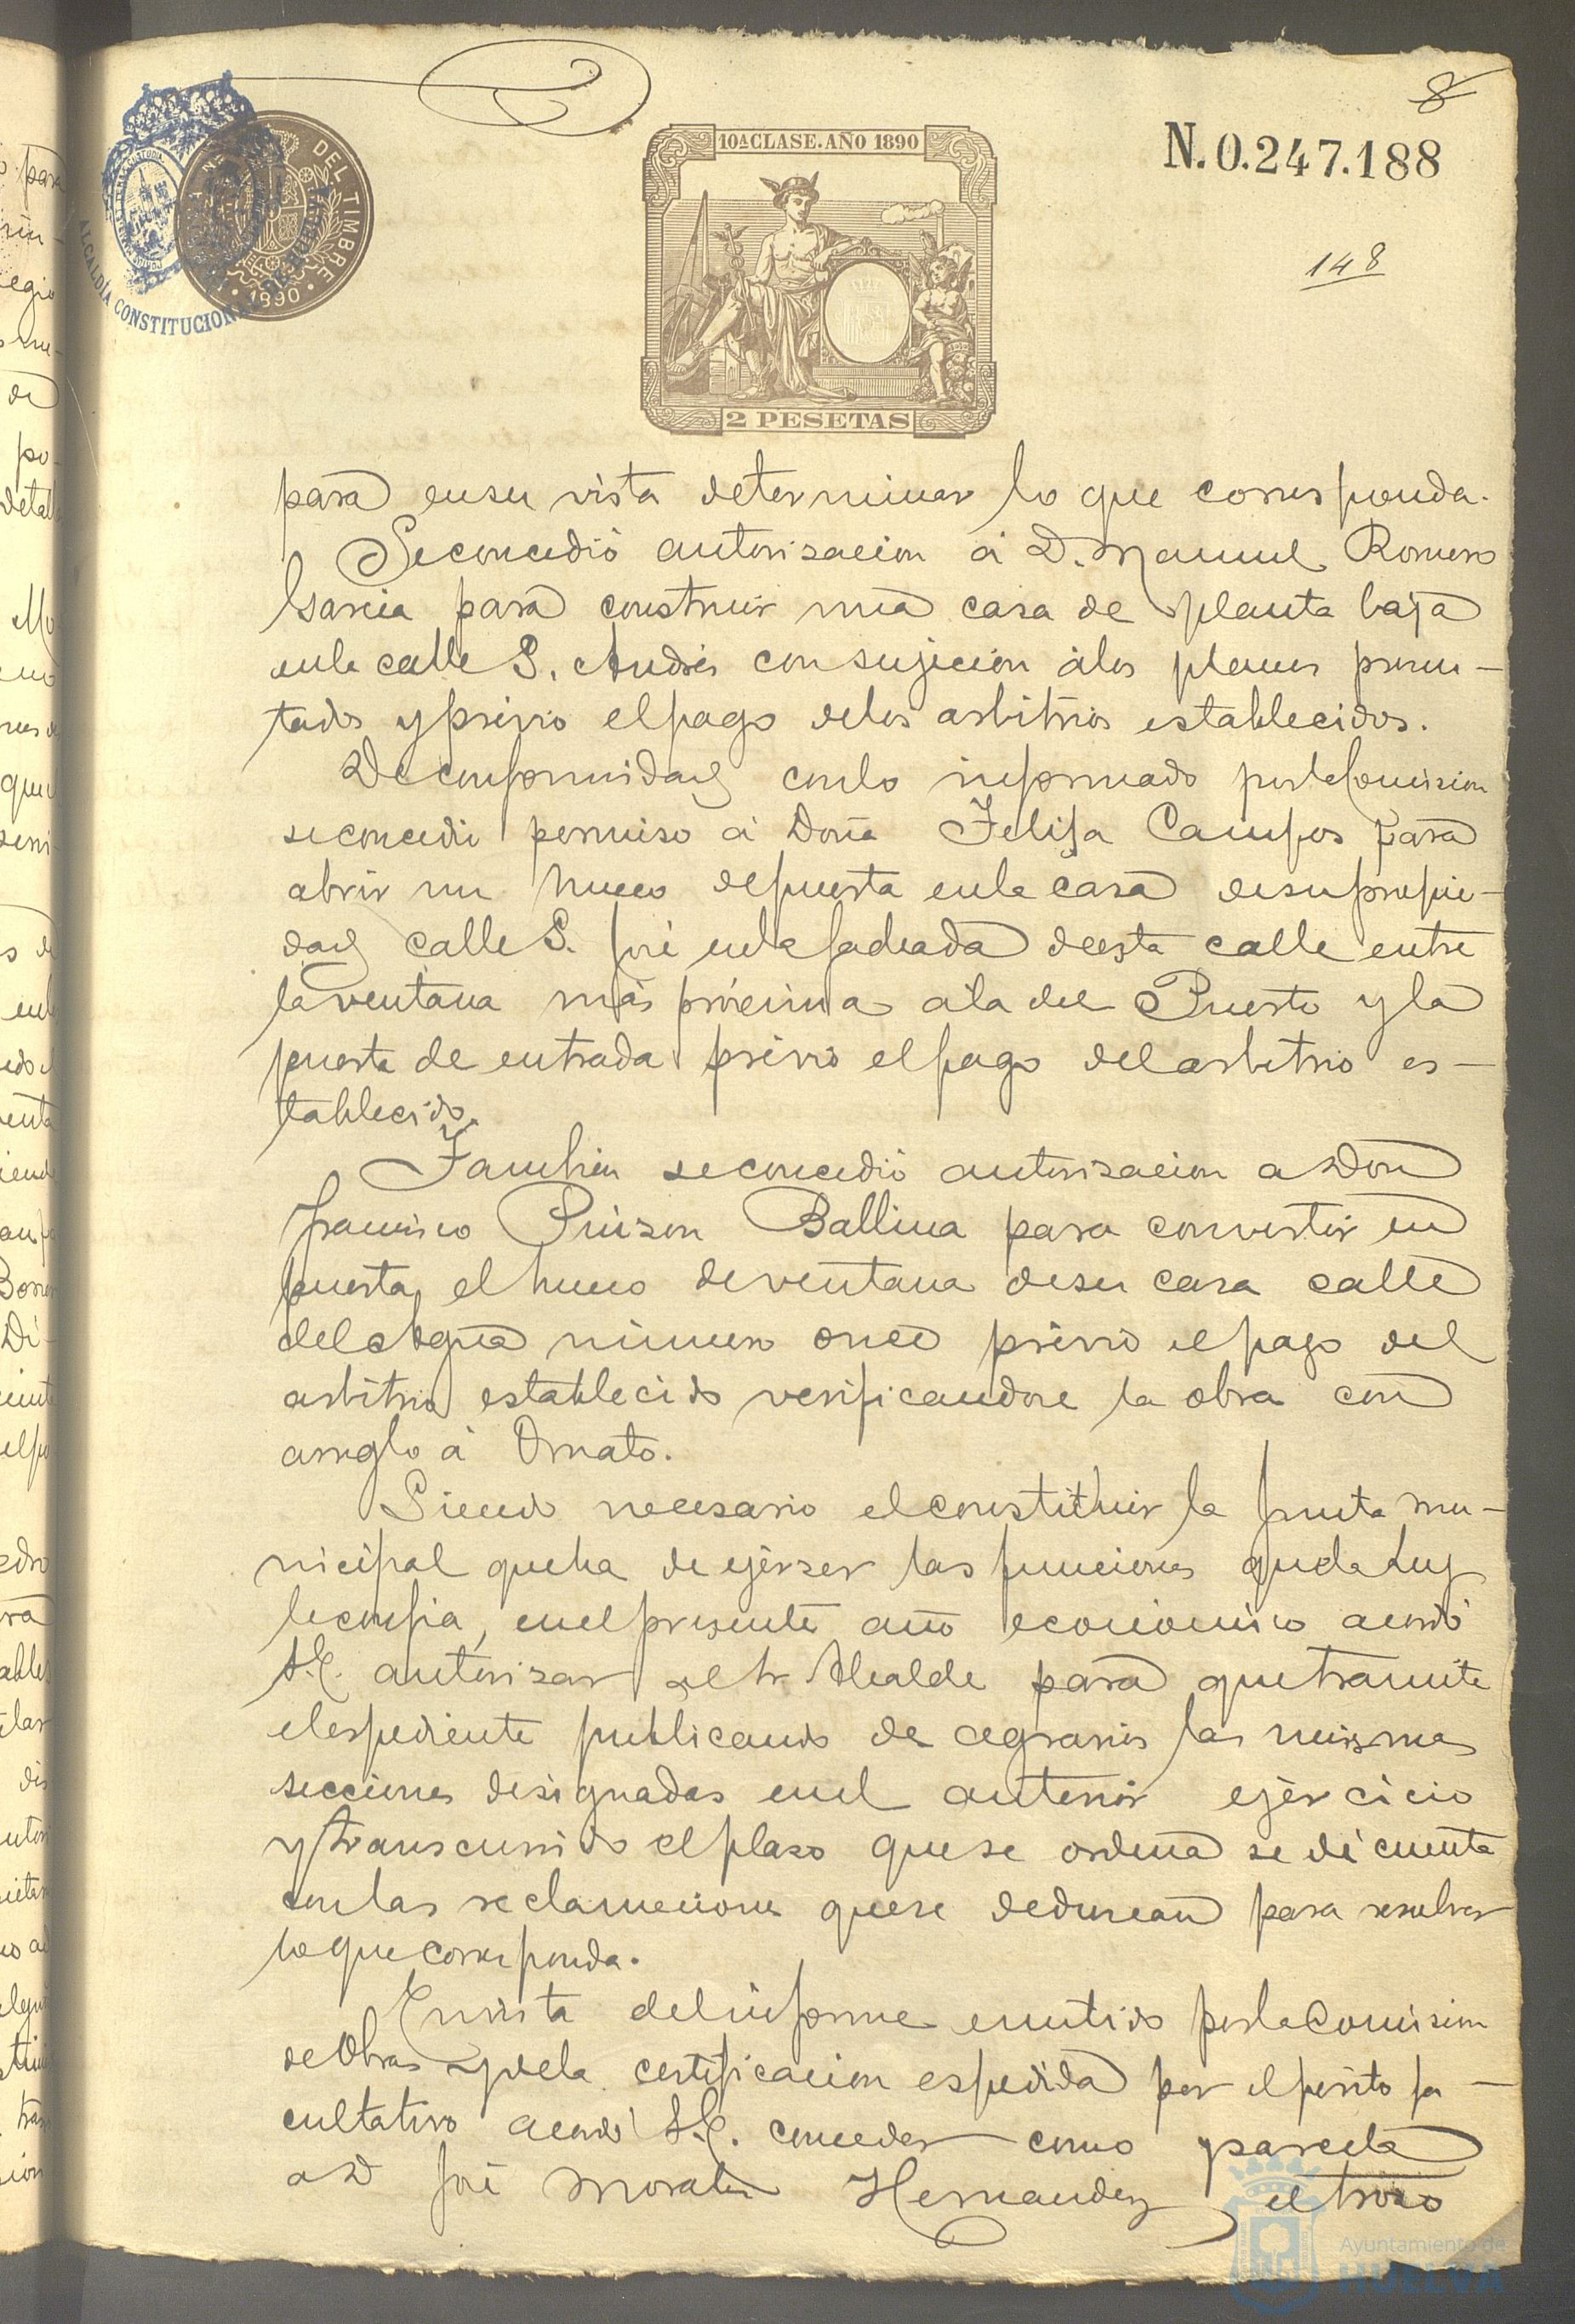 8
10ª CLASE. AÑO 1890
N.0.247.188
DEL TIMBRE
1890
ALCALDÍA CONSTITUCIONAL
148
2 PESETAS
para en su vista determinar lo que corresponda.
Se concedió autorisacion á D. Manuel Romero
Garcia para construir una casa de planta baja
en la calle S. Andrés con sujecion á los planos presen-
tados y prévio el pago de los arbitrios establecidos.
De conformidad con lo informado por la Comision
se concedió permiso á Doña Felisa Campos para
abrir un hueco de puerta en la casa de su propie-
dad calle S. José en la fachada de esta calle entre
la ventana más próxima a la del Puerto y la
puerta de entrada prévio el pago del arbitrio es-
tablecido.
Tambien se concedió autorisacion a Don
Francisco Pinzon Ballina para convertir en
puerta, el hueco de ventana de su casa calle
del Agua número once prévio el pago del
arbitrio establecido verificandose la obra con
arreglo á Ornato.
Siendo necesario el constituir la Junta mu-
nicipal que ha de ejerser las funciones que la Ley
le confia, en el presente año económico acordó
S.E. autorisar al Sr Alcalde para que tramite
el espediente publicando de agravios las mismas
secciones designadas en el anterior ejercicio
y transcurrido el plaso que se ordena se dé cuenta
con las reclamaciones que se deduscan para resolver
lo que corresponda.
En vista del informe emitido por la Comision
de Obras y de la certificacion espedida por el perito fa-
cultativo acordó S.E. conceder como parcela
a D José Morales Hernandez el troso
Ayuntamiento de
HUELVA